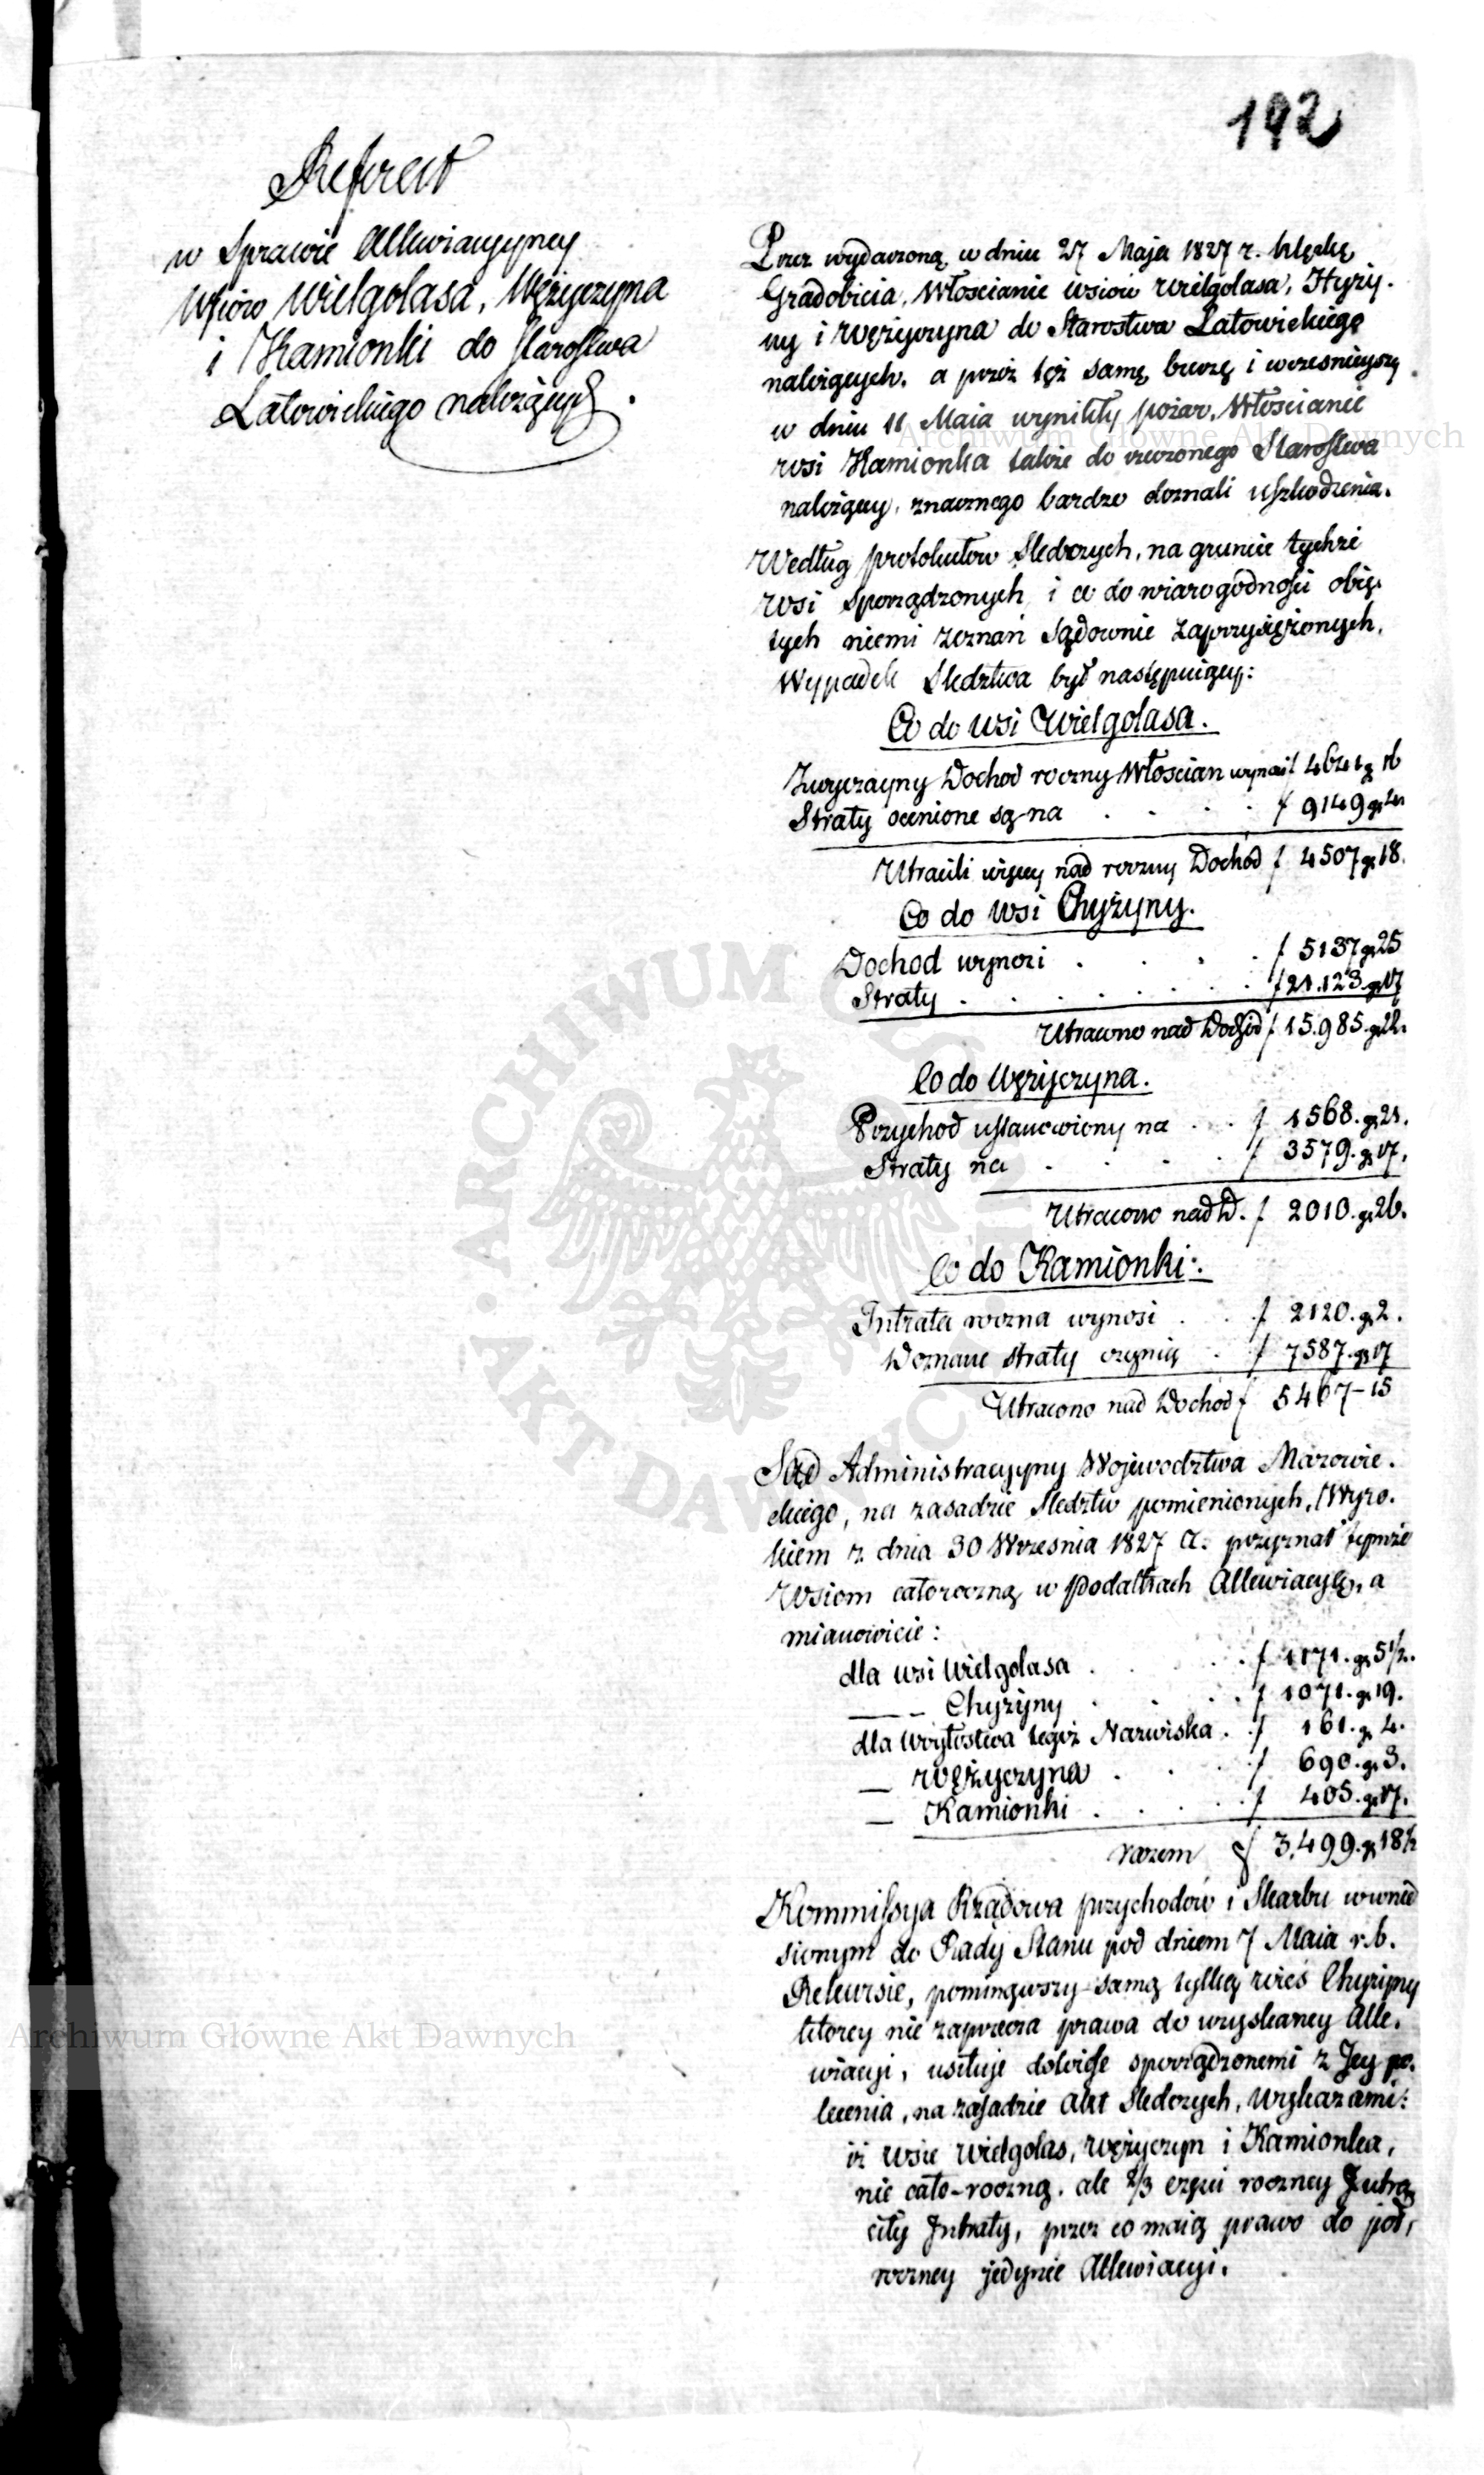 192
Referat
w Sprawie Allewiacyyney
Wsiów Wielgolasa, Wężyczyna
i Kamionki do Starostwa
Latowickiego należących.
Przez wydarzoną w dniu 27 Maja 1827 r. klęskę
Gradobicia, Włościanie wsiów Wielgolasa, Hyży-
ny i Wężyczyna do Starostwa Latowickiego
należących, a przez też samę burzę i wcześnieyszy
w dniu 11 Maia wynikły pożar, Włościanie
wsi Kamionka także do rzeczonego Starostwa
należącey, znacznego bardzo doznali uszkodzenia.
Według protokułów Śledczych, na gruncie tychże
Wsi sporządzonych i co do wiarogodności obię-
tych niemi zeznań Sądownie zaprzysiężonych,
Wypadek Śledztwa był następuiący:
Co do wsi Wielgolasa.
Zwyczayny Dochod roczny Włościan wynosi f 4641 g 16
Straty ocenione są na . . . . f 9149 gr 4
Utracili więcey nad roczny Dochód f 4507 gr 18.
Co do wsi Chyżyny.
Dochod wynosi . . . . f 5137 gr 25
Straty . . . . . . . . f 21.123. gr 17
Utracono nad Dochód f 15.985. gr 22.
Co do Wężyczyna.
Przychod ustanowiony na . . f 1568. gr 21.
Straty na . . . . f 3579. gr 17.
Utracono nad D. f 2010. gr 26.
Co do Kamionki:
Intrata roczna wynosi . . f 2120. gr 2.
Doznane straty czynią . f 7587. gr 17
Utracono nad Dochod f 5467-15
Sąd Administracyyny Województwa Mazowie-
ckiego, na zasadzie Śledztw pomienionych, Wyro-
kiem z dnia 30 Września 1827 r. przyznał tymże
Wsiom całoroczną w Podatkach Allewiacyę, a
mianowicie:
dla wsi Wielgolasa . . . . f 1171. gr 5 1/2.
— — Chyżyny . . . . f 1071. gr 19.
dla Wóytostwa tegoż Nazwiska . . f 161. gr 4.
— Wężyczyna . . . f 690. gr 3.
— Kamionki . . . . f 405. gr 17.
razem f 3,499. gr 18 1/2
Kommissya Rządowa przychodów i Skarbu w wnie
sionym do Rady Stanu pod dniem 7 Maia r.b.
Rekursie, pominąwszy samą tylko wieś Chyżyny
którey nie zaprzecza prawa do uzyskaney Alle-
wiacyi, usiłuje dowieść sporządzonemi z Jey po-
lecenia, na zasadzie Akt Śledczych, wykazami:
iż wsie Wielgolas, Wężyczyn i Kamionka,
nie cało-roczną, ale 2/3 części roczney Jutra
ciły Intraty, przez co maią prawo do pół,
roczney jedynie Allewiacyi.
Archiwum Główne Akt Dawnych
Archiwum Główne Akt Dawnych